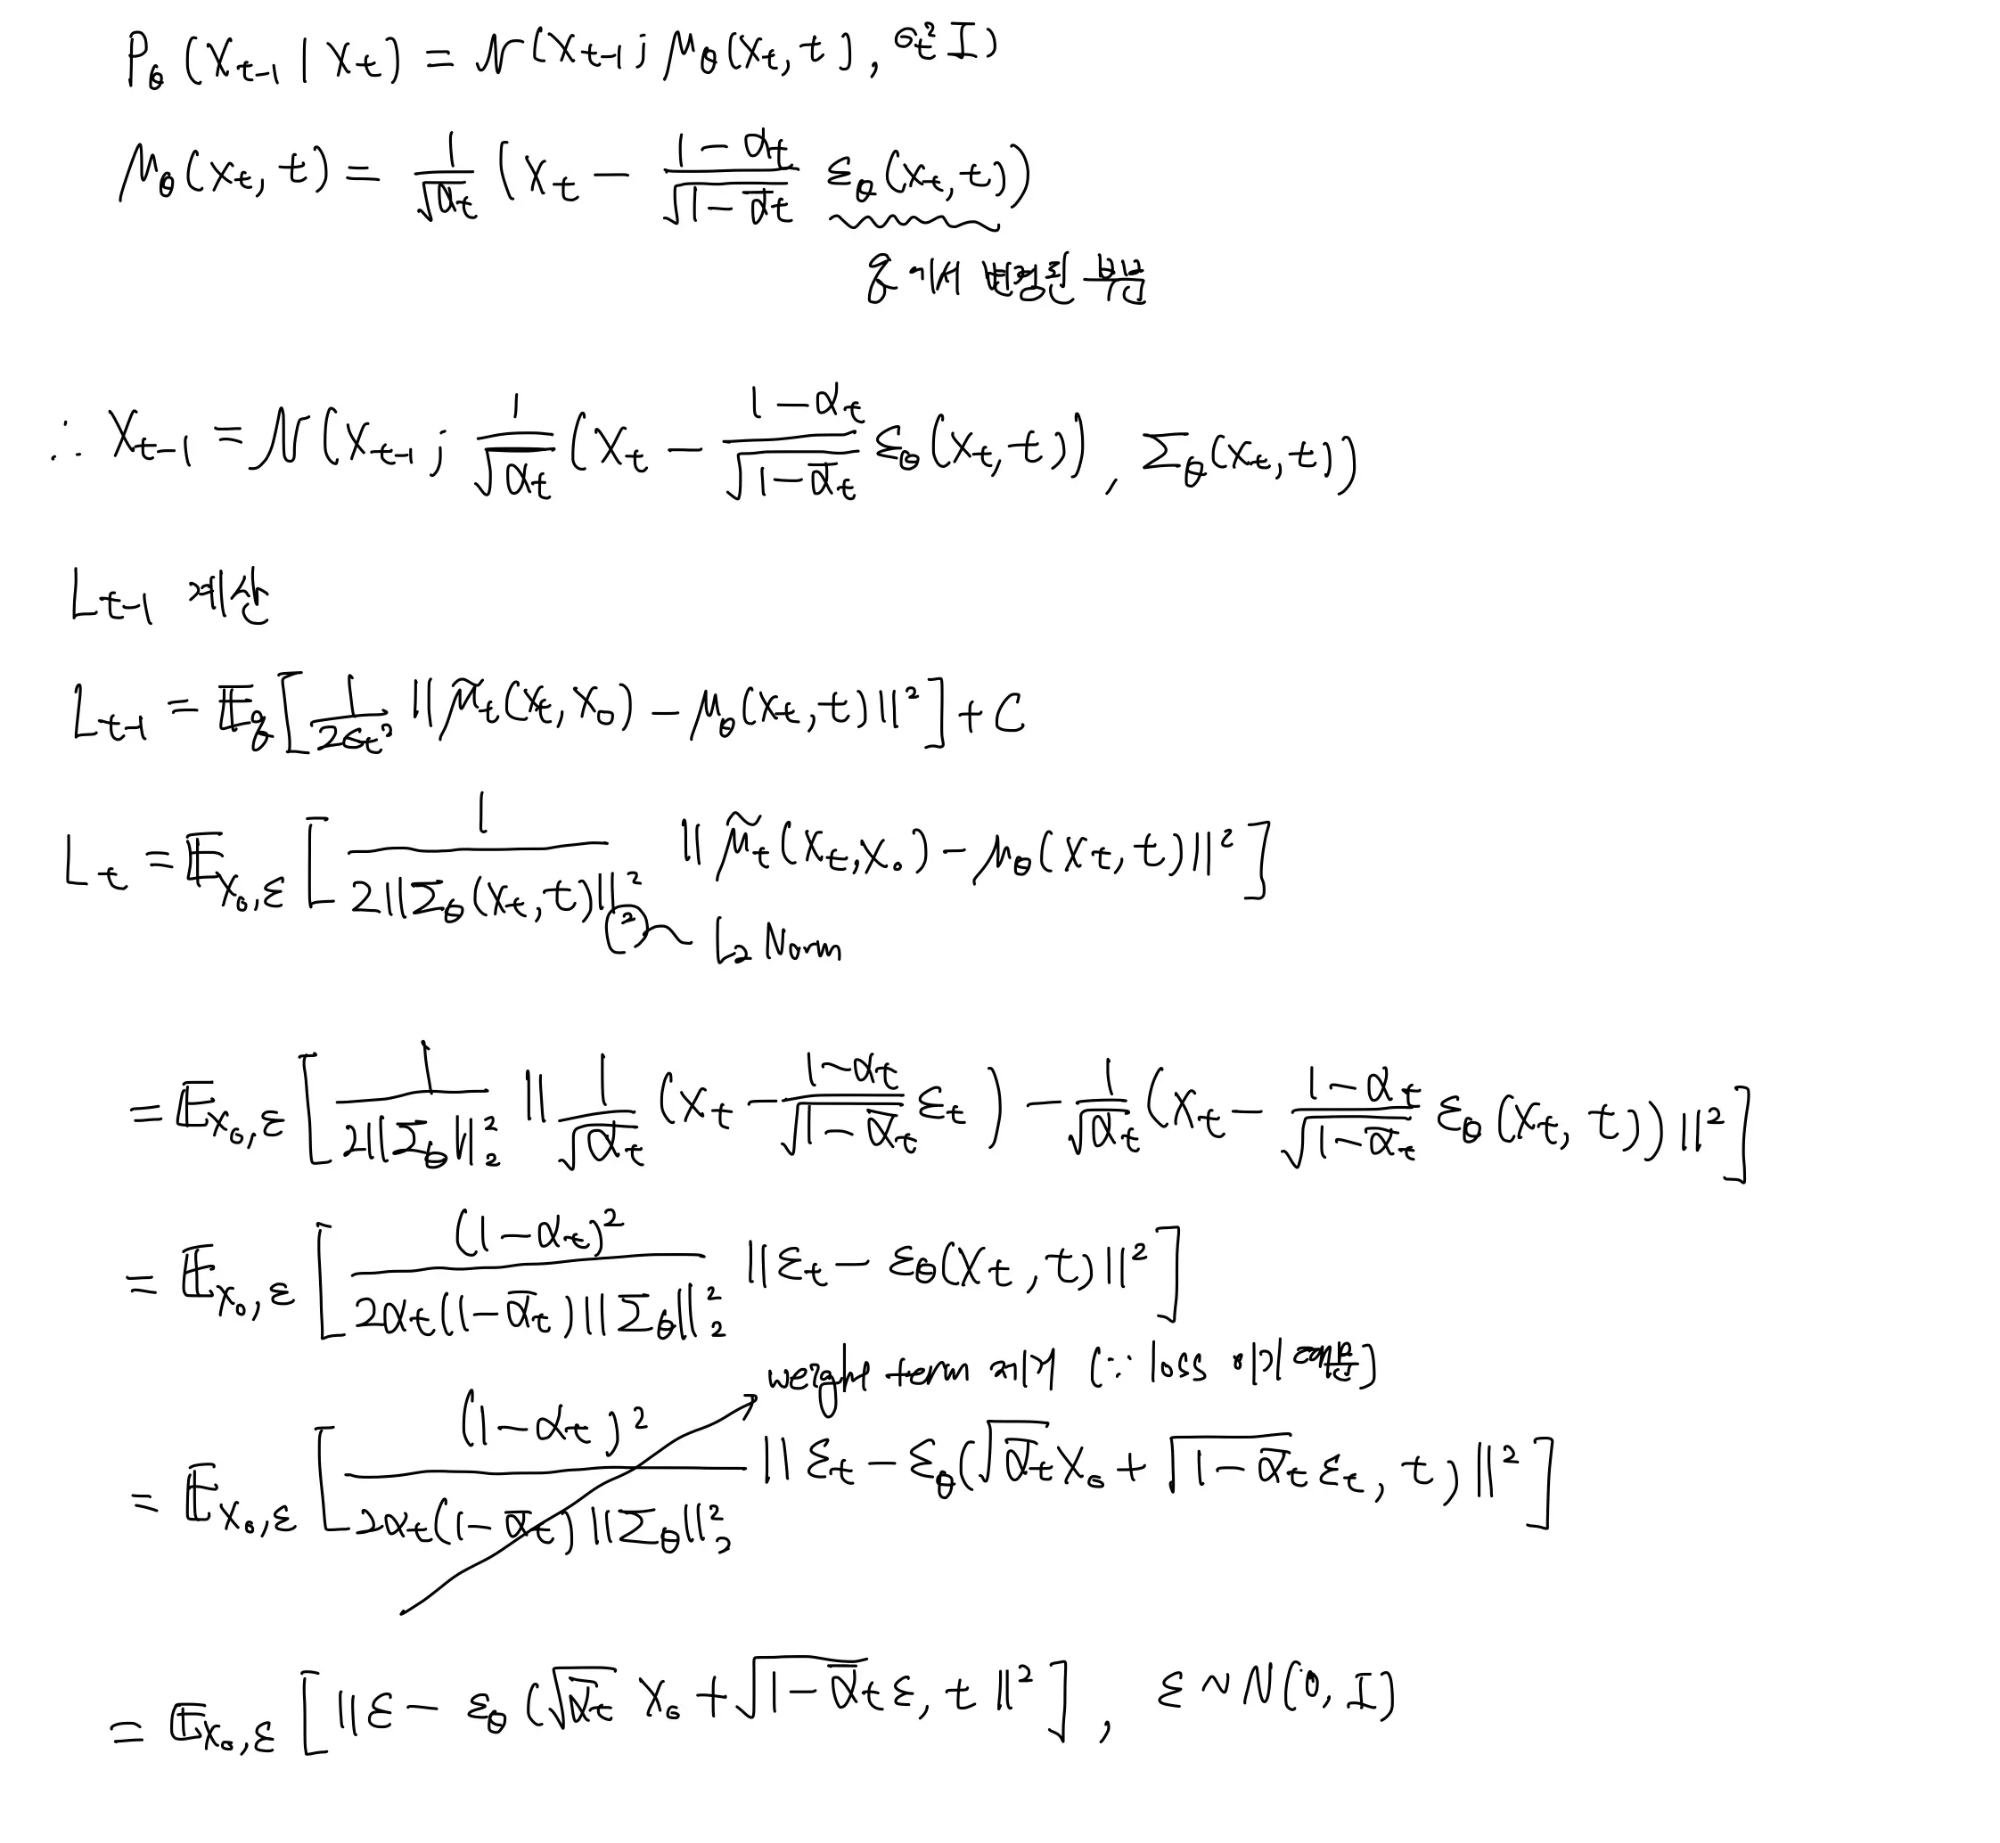 P_θ(x_{t-1} | x_t) = N(x_{t-1}; μ_θ(x_t, t), σ_t² I)
μ_θ(x_t, t) = 1/√α_t (x_t − (1−α_t)/√(1−ᾱ_t) ε_θ(x_t, t))
변경된 부분
∴ X_{t-1} = N(x_{t-1}; 1/√α_t (x_t − (1−α_t)/√(1−ᾱ_t) ε_θ(x_t, t)), Σ_θ(x_t, t))
L_{t-1} 계산
L_{t-1} = E_q[1/(2σ_t²) ||μ̃_t(x_t, x_0) − μ_θ(x_t, t)||²] + C
L_t = E_{x_0,ε}[1/(2||Σ_θ(x_t, t)||²₂) ||μ̃_t(x_t, x_0) − μ_θ(x_t, t)||²]
L2 Norm
= E_{x_0,ε}[1/(2||Σ_θ||²₂) ||1/√α_t (x_t − (1−α_t)/√(1−ᾱ_t) ε_t) − 1/√α_t (x_t − (1−α_t)/√(1−ᾱ_t) ε_θ(x_t, t))||²]
= E_{x_0,ε}[(1−α_t)²/(2α_t(1−ᾱ_t)||Σ_θ||²₂) ||ε_t − ε_θ(x_t, t)||²]
weight term 제거 (∵ loss
= E_{x_0,ε}[(1−α_t)²/(2α_t(1−ᾱ_t)||Σ_θ||²₂) ||ε_t − ε_θ(√ᾱ_t x_0 + √(1−ᾱ_t) ε_t, t)||²]
= E_{x_0,ε}[||ε − ε_θ(√ᾱ_t x_0 + √(1−ᾱ_t) ε, t||²], ε ~ N(0, I)